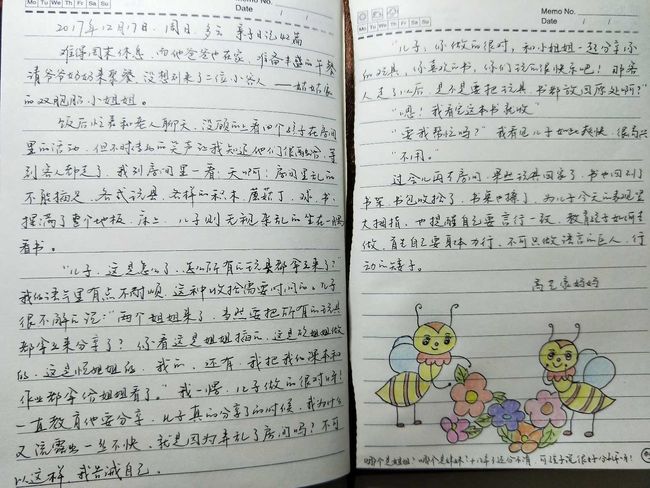 Mo Tu We Th Fr Sa Su
Memo No.
Date / /
2017年12月17日 周日 多云 亲子日记42篇
难得周末休息,而他爸爸也在家,准备丰盛的午餐
请爷爷奶奶来聚餐,没想到来了二位小客人——姑姑家
的双胞胎小姐姐。
饭后忙着和老人聊天,没顾的上看四个孩子在房间
里的活动,但不时传出的笑声让我知道他们很融洽,等
到客人都走了,我到房间里一看:天啊!房间里乱的
不能描述,各式玩具,各样的积木,蘑菇丁,球,书,
摆满了整个地板,床上,儿子则无视杂乱的坐在一旁
看书。
“儿子,这是怎么了,怎么所有的玩具都拿出来了?”
我的语气里有点不耐烦,这种收拾需要时间的。儿子
很不解的说:“两个姐姐来了,当然要把所有的玩具
都拿出来分享了?你看这是姐姐插的,这是姐姐做
的,这是姐姐的,我的,还有,我把我的课本和
作业都拿给姐姐看了。”我一愣,儿子做的很对呀!
一直教育他要分享,儿子真的分享了的时候,我为什么
又流露出一丝不快,就是因为弄乱了房间吗?不可
以这样,我告诫自己。
Mo Tu We Th Fr Sa Su
Memo No.
Date / /
“儿子,你做的很对,和小姐姐一起分享你
的玩具,你喜欢的书,你们玩的很快乐吧!那客
人走了以后,是不是要把玩具,书都放回原处啊?”
“嗯!我看完这本书就收”
“要我帮忙吗?”我看见儿子如此爽快,很高兴
“不用。”
过一会儿再去房间,果然玩具回家了,书也回到了
书架,书包收拾了,书桌也擦了,为儿子今天的表现竖
大拇指,也提醒自己要言行一致,教育孩子如何去
做,首先自己要身体力行,不可只做语言的巨人,行
动的矮子。
妈妈
哪个是姐姐?哪个是妹妹?